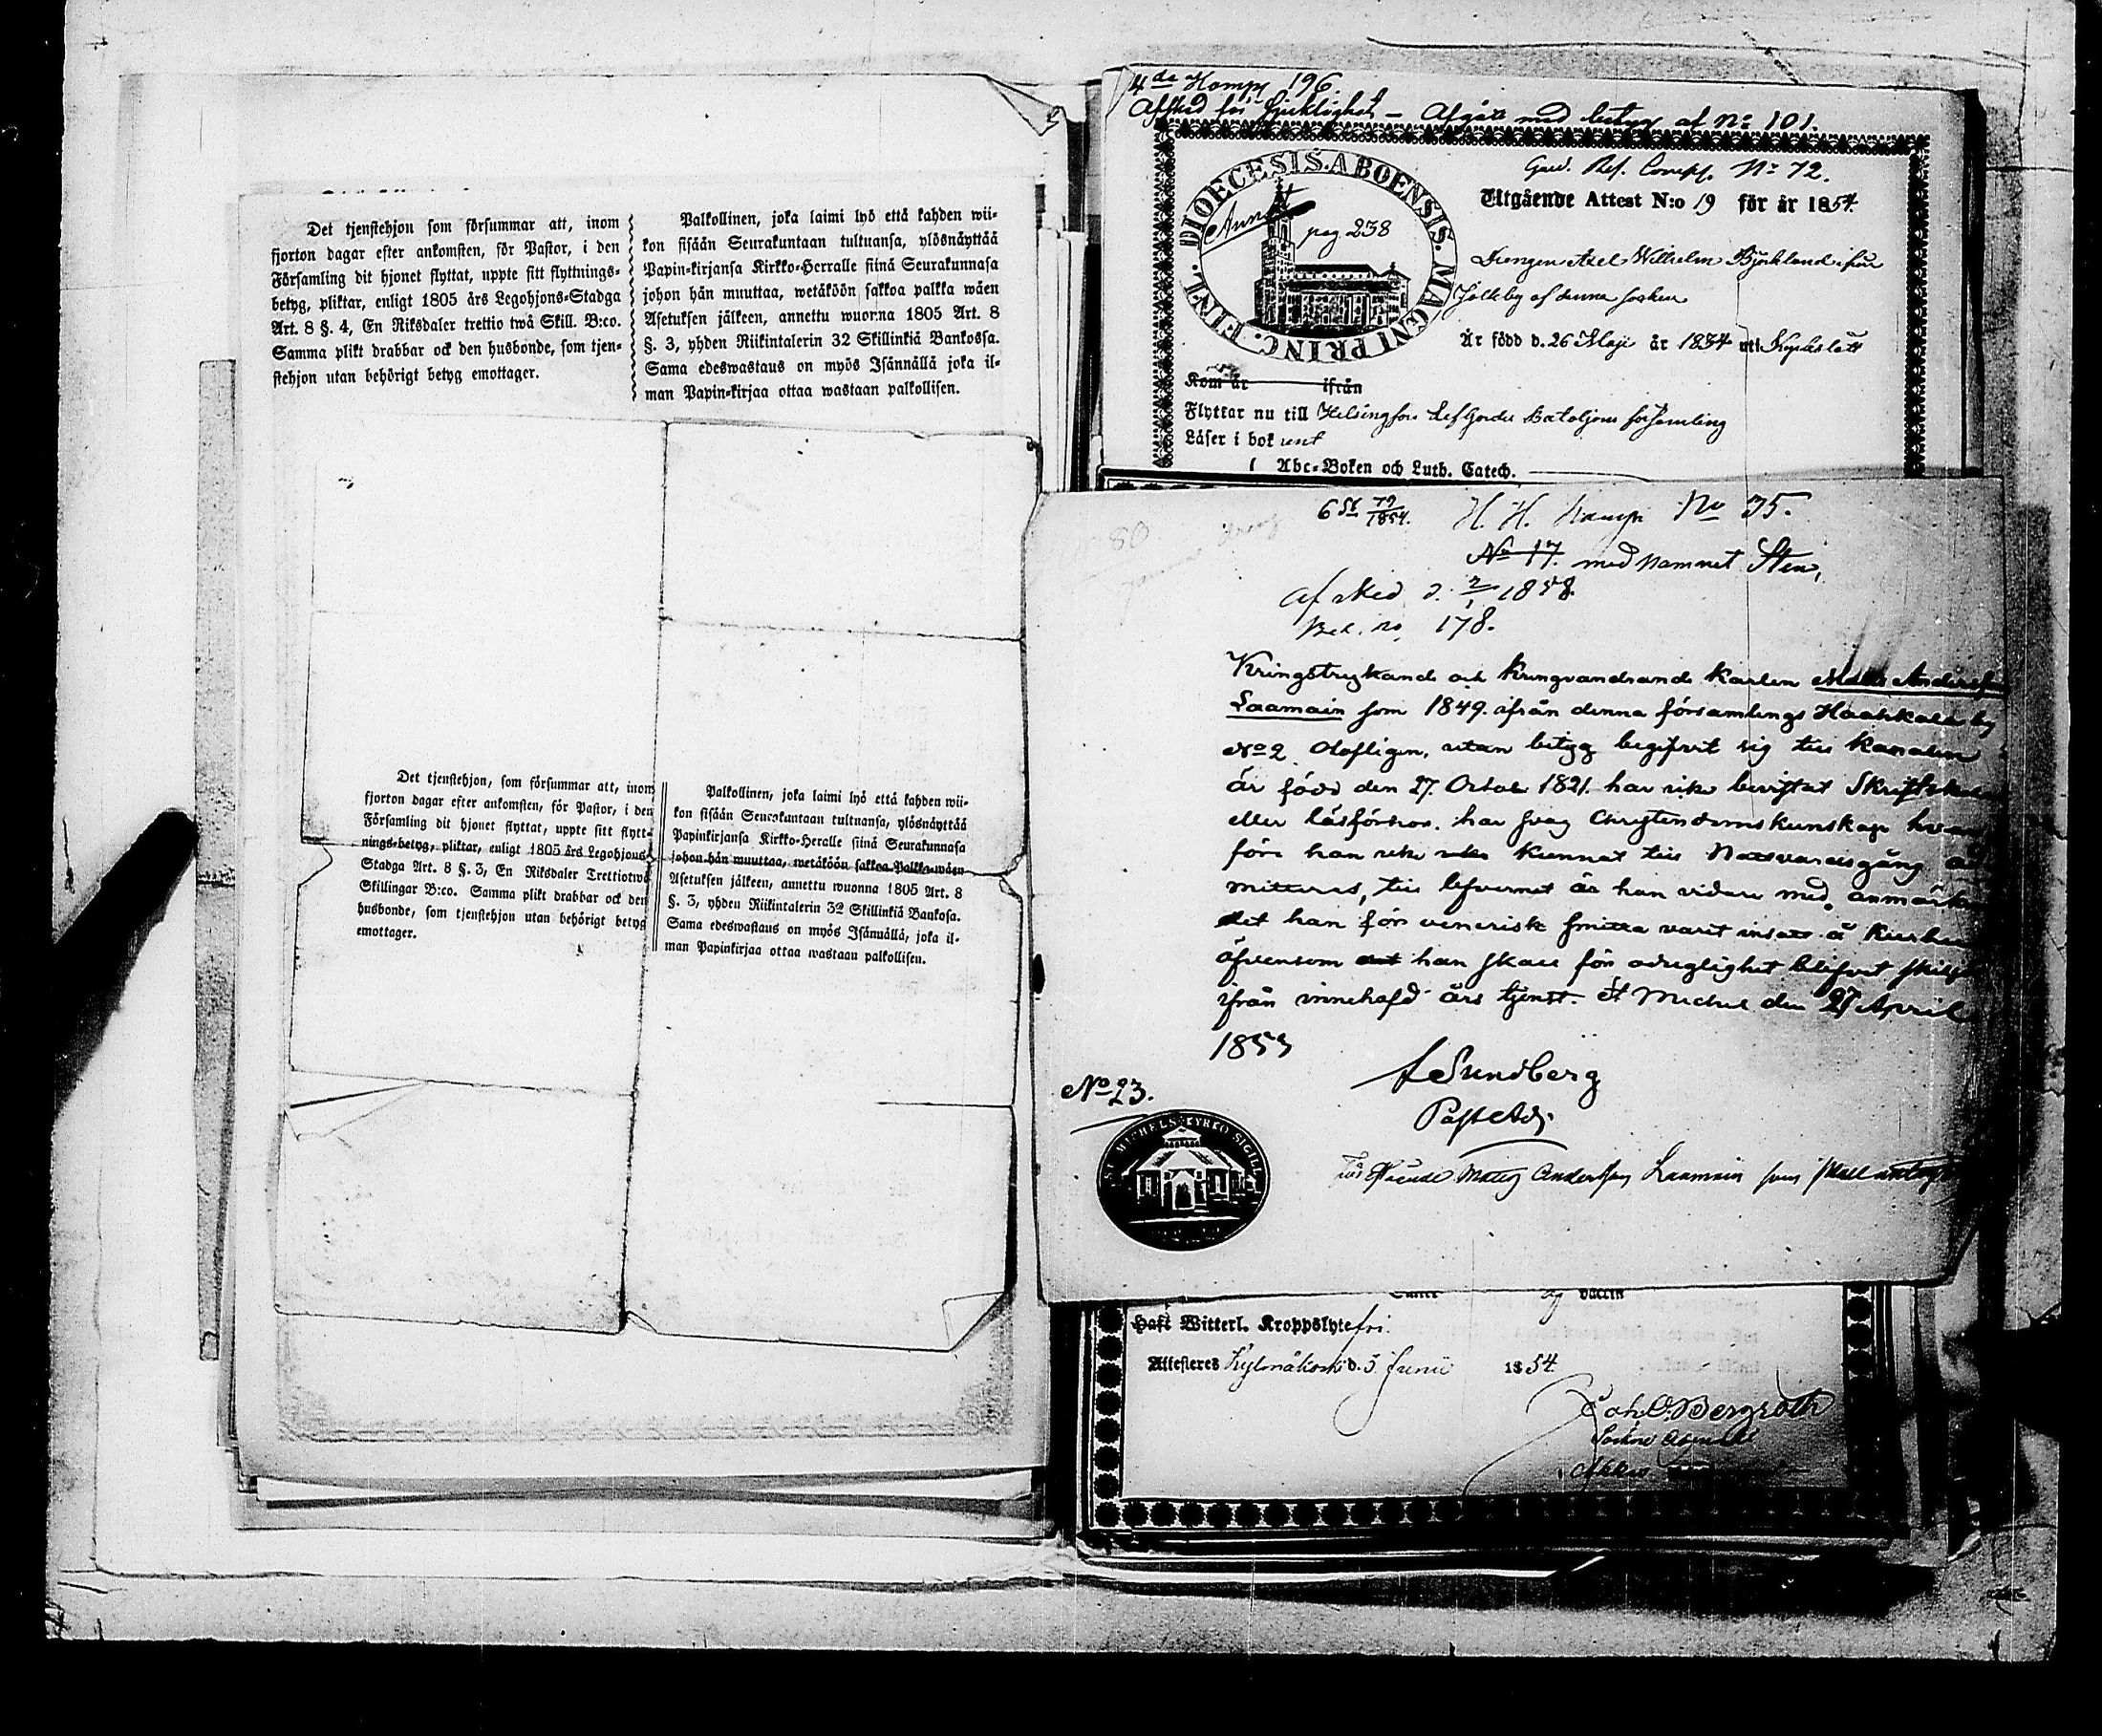 Det tjenstehjon som försummar att, inom
fjorton dagar efter ankomsten, för Pastor, i den
Församling dit hjonet flyttat, uppte sitt flyttnings-
betyg, pliktar, enligt 1805 års Legohjons-Stadga
Art. 8 §. 4, En Riksdaler trettio twå Skill. B:co.
Samma plikt drabbar ock den husbonde, som tjen-
stehjon utan behörigt betyg emottager.
Palkollinen, joka laimi lyö että kahden wii-
kon sisään Seurakuntaan tultuansa, ylösnäyttää
Papin-kirjansa Kirkko-Herralle siinä Seurakunnasa
johon hän muuttaa, wetäköön sakkoa palkka wäen
Asetuksen jälkeen, annettu wuonna 1805 Art. 8
§. 3, yhden Riikintalerin 32 Skillinkiä Bankossa.
Sama edeswastaus on myös Isännällä joka il-
man Papin-kirjaa ottaa wastaan palkollisen.
Det tjenstehjon, som försummar att, inom
fjorton dagar efter ankomsten, för Pastor, i den
Församling dit hjonet flyttat, uppte sitt flytt-
nings-betyg, pliktar, enligt 1805 års Legohjons-
Stadga Art. 8 §. 3, En Riksdaler Trettiotwå
Skillingar B:co. Samma plikt drabbar ock den
husbonde, som tjenstehjon utan behörigt betyg
emottager.
Palkollinen, joka laimi lyö että kahden wii-
kon sisään Seurakuntaan tultuansa, ylösnäyttää
Papinkirjansa Kirkko-Heralle siinä Seurakunnasa
johon hän muuttaa, wetäköön sakkoa Palkka-wäen
Asetuksen jälkeen, annettu wuonna 1805 Art. 8
§. 3, yhden Riikintalerin 32 Skillinkiä Bankosa.
Sama edeswastaus on myös Isännällä, joka il-
man Papinkirjaa ottaa wastaan palkollisen.
4de Komp 196.
Afsked för sjuklighet – Afgått med betyg af No 101.
Gard. Res. Comp. No 72.
DIOECESIS. ABOENSIS. MAGNI PRINC. FINL.
pag 238
Utgående Attest N:o 19 för år 1854.
Drengen Axel Wilhelm Björklund ifrån
by af denna socken
Är född d. 26 Maji år 1834 uti Kyrkslätt
Kom år ifrån
Flyttar nu till Helsingfors Lef Garde Bataljons församling
Läser i bok rent
Abc-Boken och Luth. Catech.
80
6 St 72/1854. H. H. Komp No 35.
No 17. med namnet Sten,
afsked d. 2/1 1858.
Bet. no 178.
Kringstrykand och kringvandrand karlen Matts Andersson
Laamain som 1849. ifrån denna församlings by
No 2 utan betyg begifvit sig till kanalen
är född den 27. October 1821. har icke bevistat Skriftskola
eller läsförhör. har svag Christendomskunskap
före han icke kunnat till Nattvardsgång ad
mitteras, till lefvernet är han vidare med
det han för venerisk smitta varit insatt å Kurhus
äfvensom han skall för odueglighet blifvit skild
ifrån innehafd års tjenst. St Michel den 27 April
1853
A Sundberg
Past Adj.
No 23.
ST. MICHELS KYRKO SIGILL
Matts Andersson Laamain som skall
vaccin
Haft Witterl. Kroppslyte fri.
Attesteras d. 3 Junii 1854.
Joh. O. Bergroth